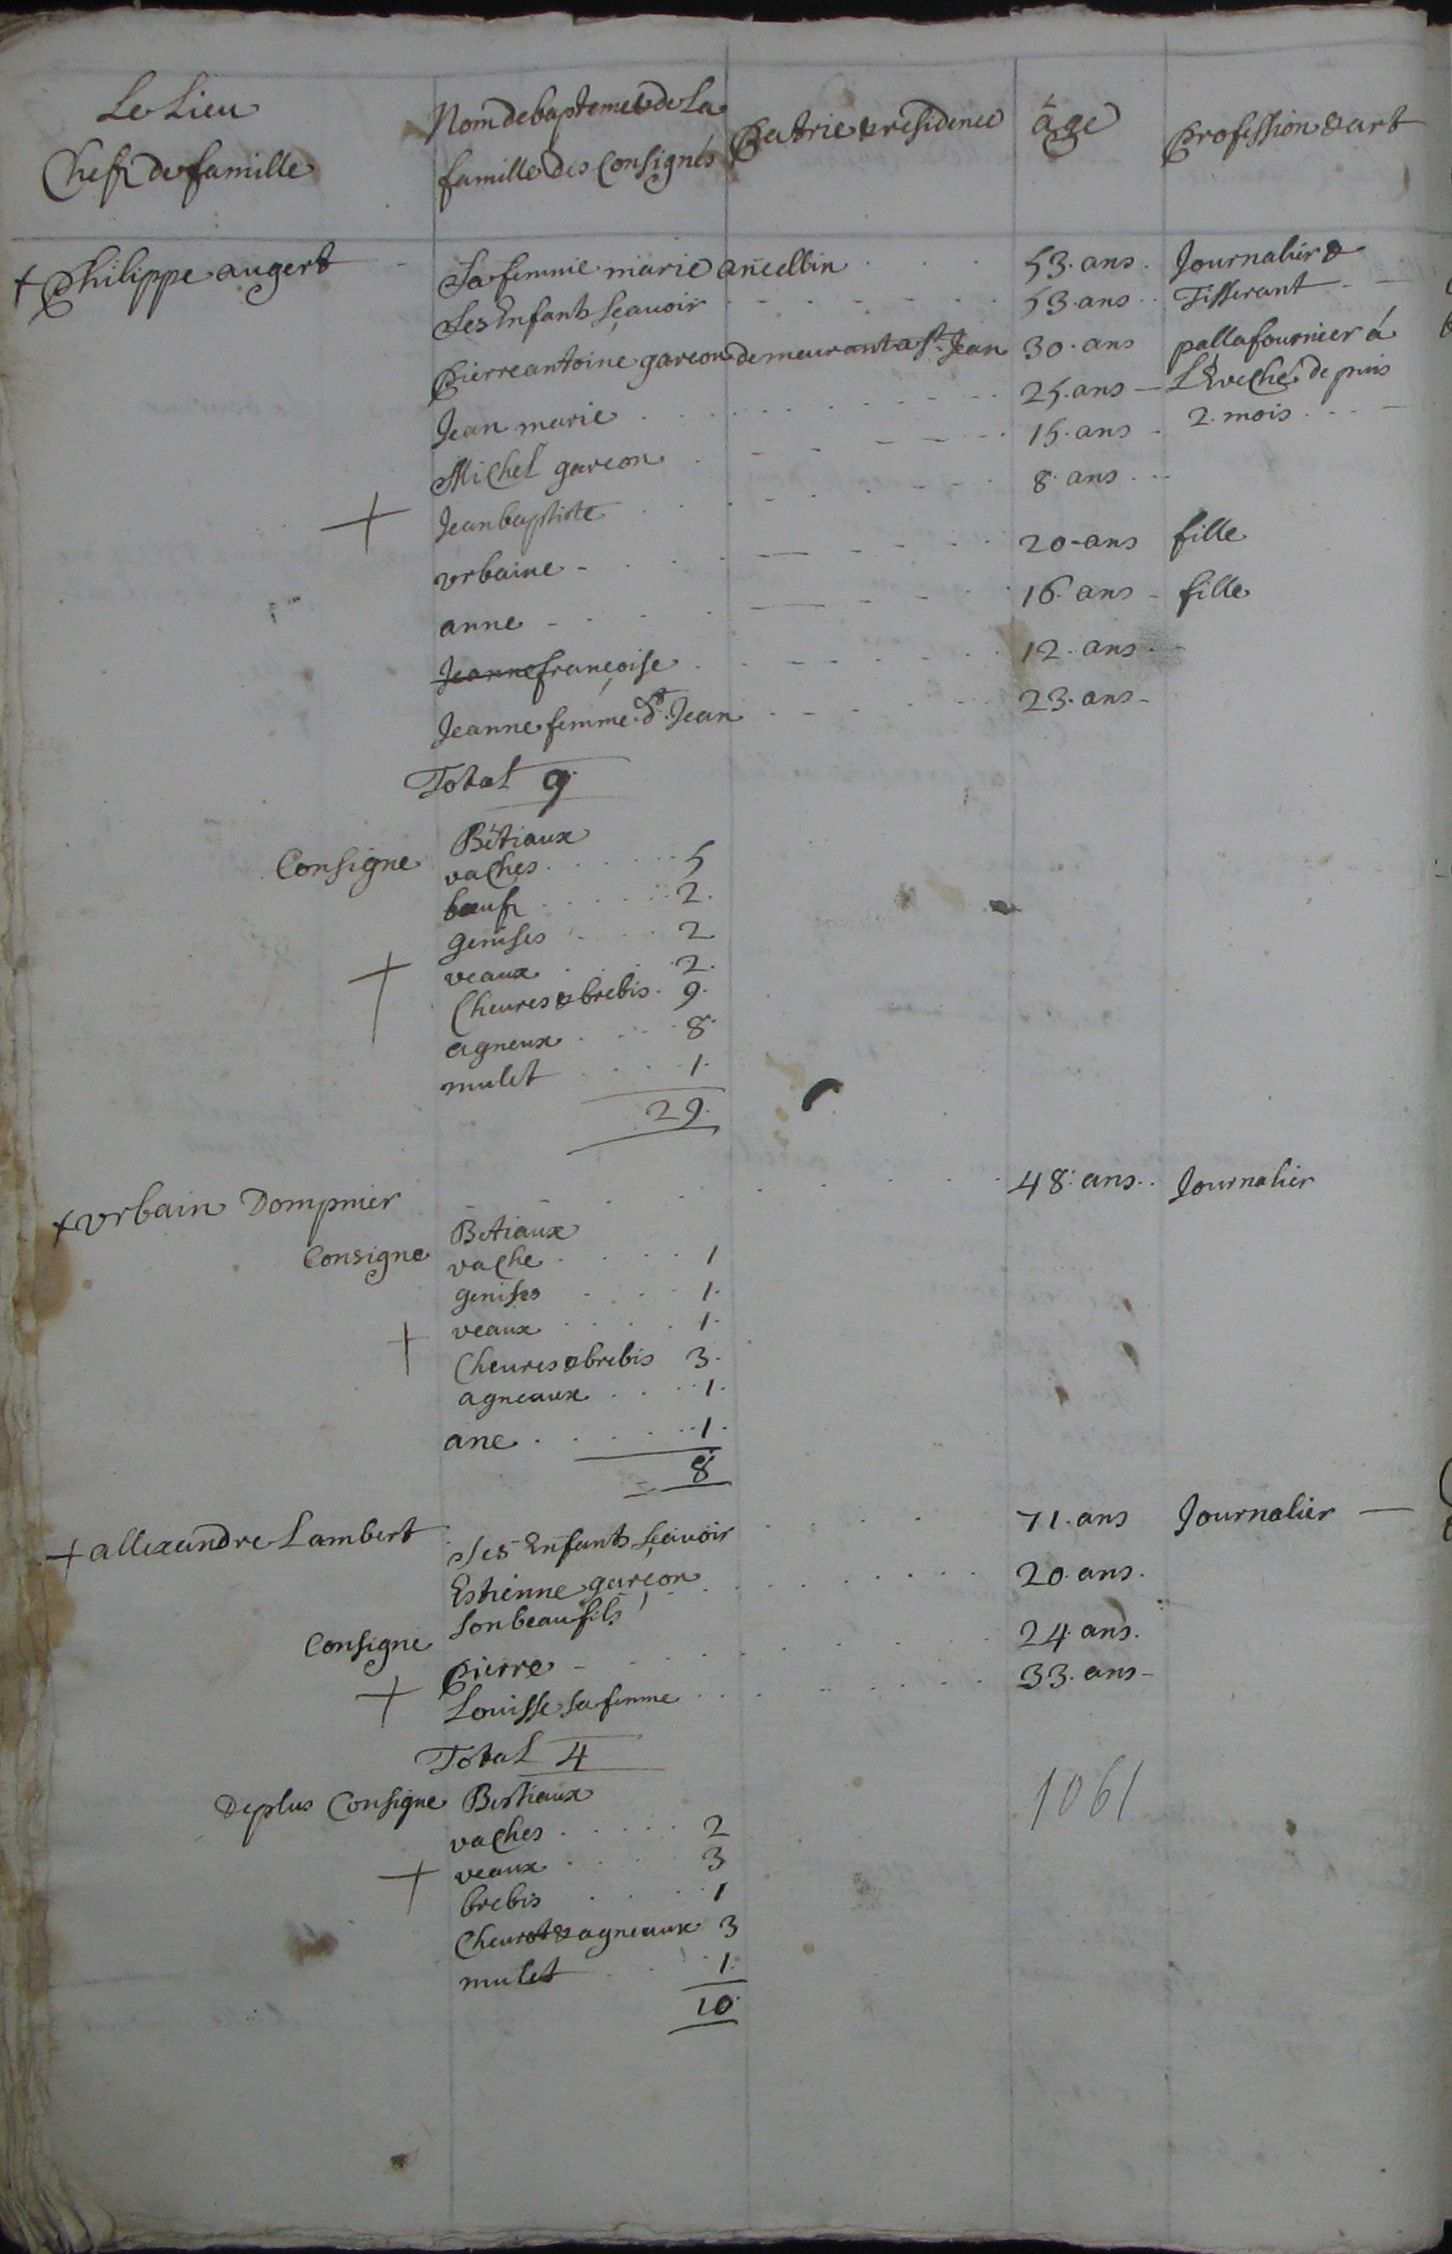 Le Lieu
Chefz de famille
Nom de bapteme & de La
famille des Consignés
Patrie & residence
âge
Profession & art
+ Philippe augert 53. ans. Journalier &
Sa femme marie ancellin 53. ans Tisserant
Ses Enfants Sçavoir
Pierre antoine garcon demeurant a St. Jean 30. ans pallafournier á
L'Eveché depuis
2. mois
Jean marie 25. ans
Michel garcon 15. ans
Jean baptiste 8. ans
+
vrbaine 20. ans fille
anne 16. ans fille
Jeanne françoise 12. ans
Jeanne femme dt. Jean 23. ans
Total 9.
Consigne Bétiaux
vaches 5
bœufz 2.
genises 2
veaux 2.
+
Cheures & brebis 9.
agneux 8
mulet 1.
29.
+ vrbain Dompnier 48. ans Journalier
Consigne Betiaux
vache 1
genises 1.
veaux 1.
+
Cheures & brebis 3.
agneaux 1.
ane 1.
8
+ allexandre Lambert 71. ans Journalier
Ses Enfants Sçavoir
Estienne garçon 20. ans.
Consigne Son beaufils
Pierre 24. ans.
+ Louisse sa femme 33. ans
Total 4
De plus Consigne Bestiaux
1061
vaches 2
+ veaux 3
brebis 1
Cheurot & agneaux 3
mulet 1.
10.